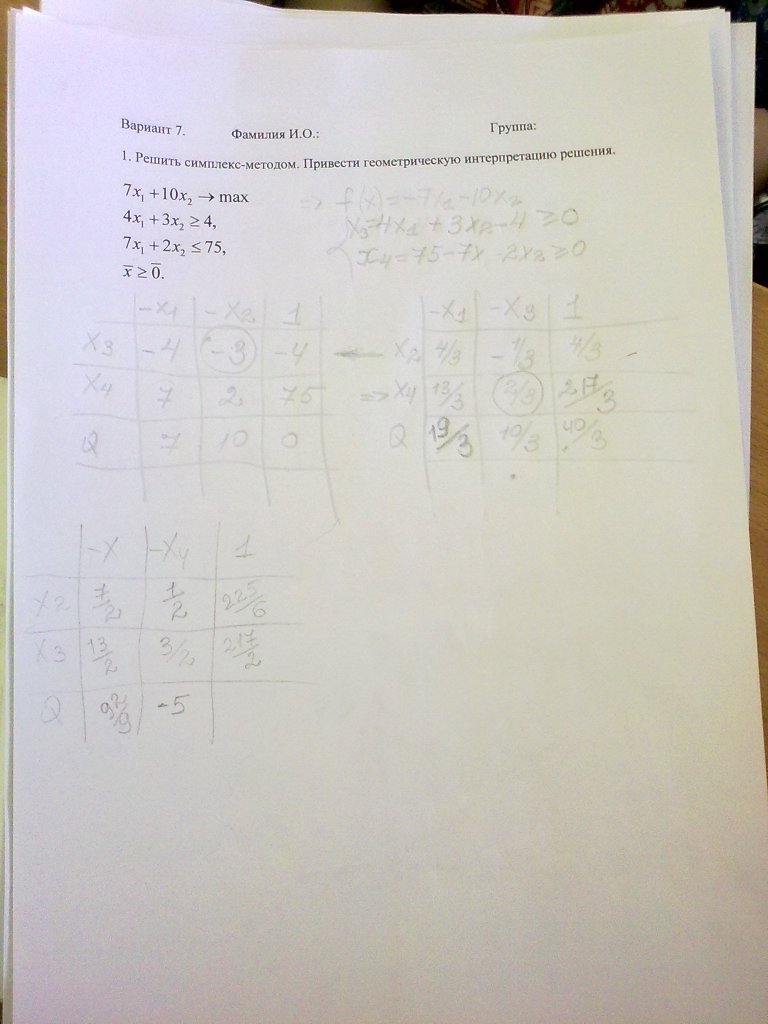 Вариант 7. Фамилия И.О.: Группа:
1. Решить симплекс-методом. Привести геометрическую интерпретацию решения.
7x₁ + 10x₂ → max => f(x) = -7x₁ - 10x₂
4x₁ + 3x₂ ≥ 4, x₃ = 4x₁ + 3x₂ - 4 ≥ 0
7x₁ + 2x₂ ≤ 75, x₄ = 75 - 7x - 2x₂ ≥ 0
x̄ ≥ 0̄.
-x₁ -x₂ 1
x₃ -4 -3 -4
x₄ 7 2 75
Q 7 10 0
-x₁ -x₃ 1
x₂ 4/3 -1/3 4/3
=> x₄ 13/3 2/3 217/3
Q 19/3 10/3 40/3
-x -x₄ 1
x₂ 7/2 1/2 225/6
x₃ 13/2 3/2 217/2
Q -5